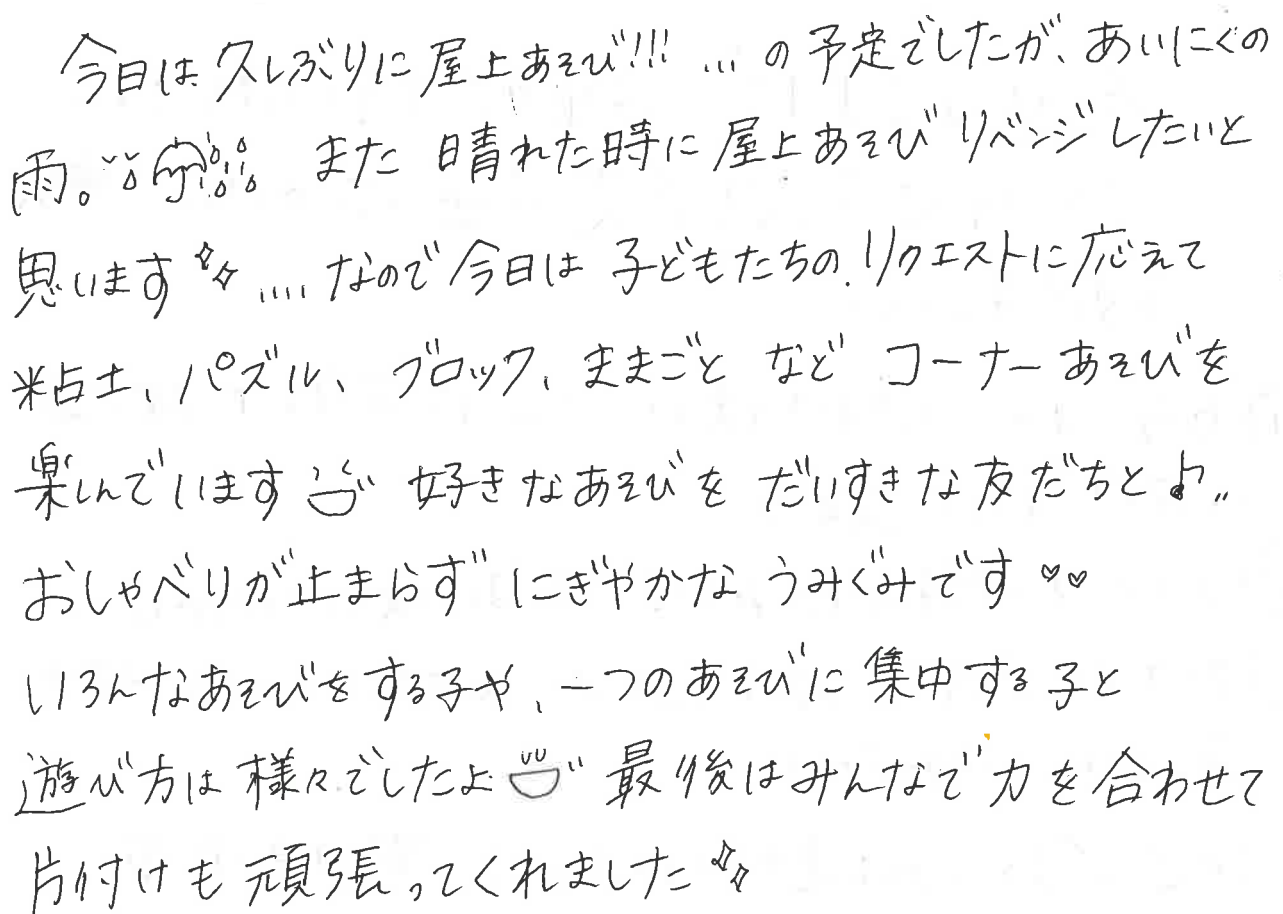 今日は久しぶりに屋上あそび!!! ...の予定でしたが、あいにくの
雨。また晴れた時に屋上あそびリベンジしたいと
思います....なので今日は子どもたちのリクエストに応えて
粘土、パズル、ブロック、ままごとなどコーナーあそびを
楽しんでいます 好きなあそびをだいすきな友だちと♪
おしゃべりが止まらずにぎやかなうみぐみです♡♡
いろんなあそびをする子や、一つのあそびに集中する子と
遊び方は様々でしたよ 最後はみんなで力を合わせて
片付けも頑張ってくれました